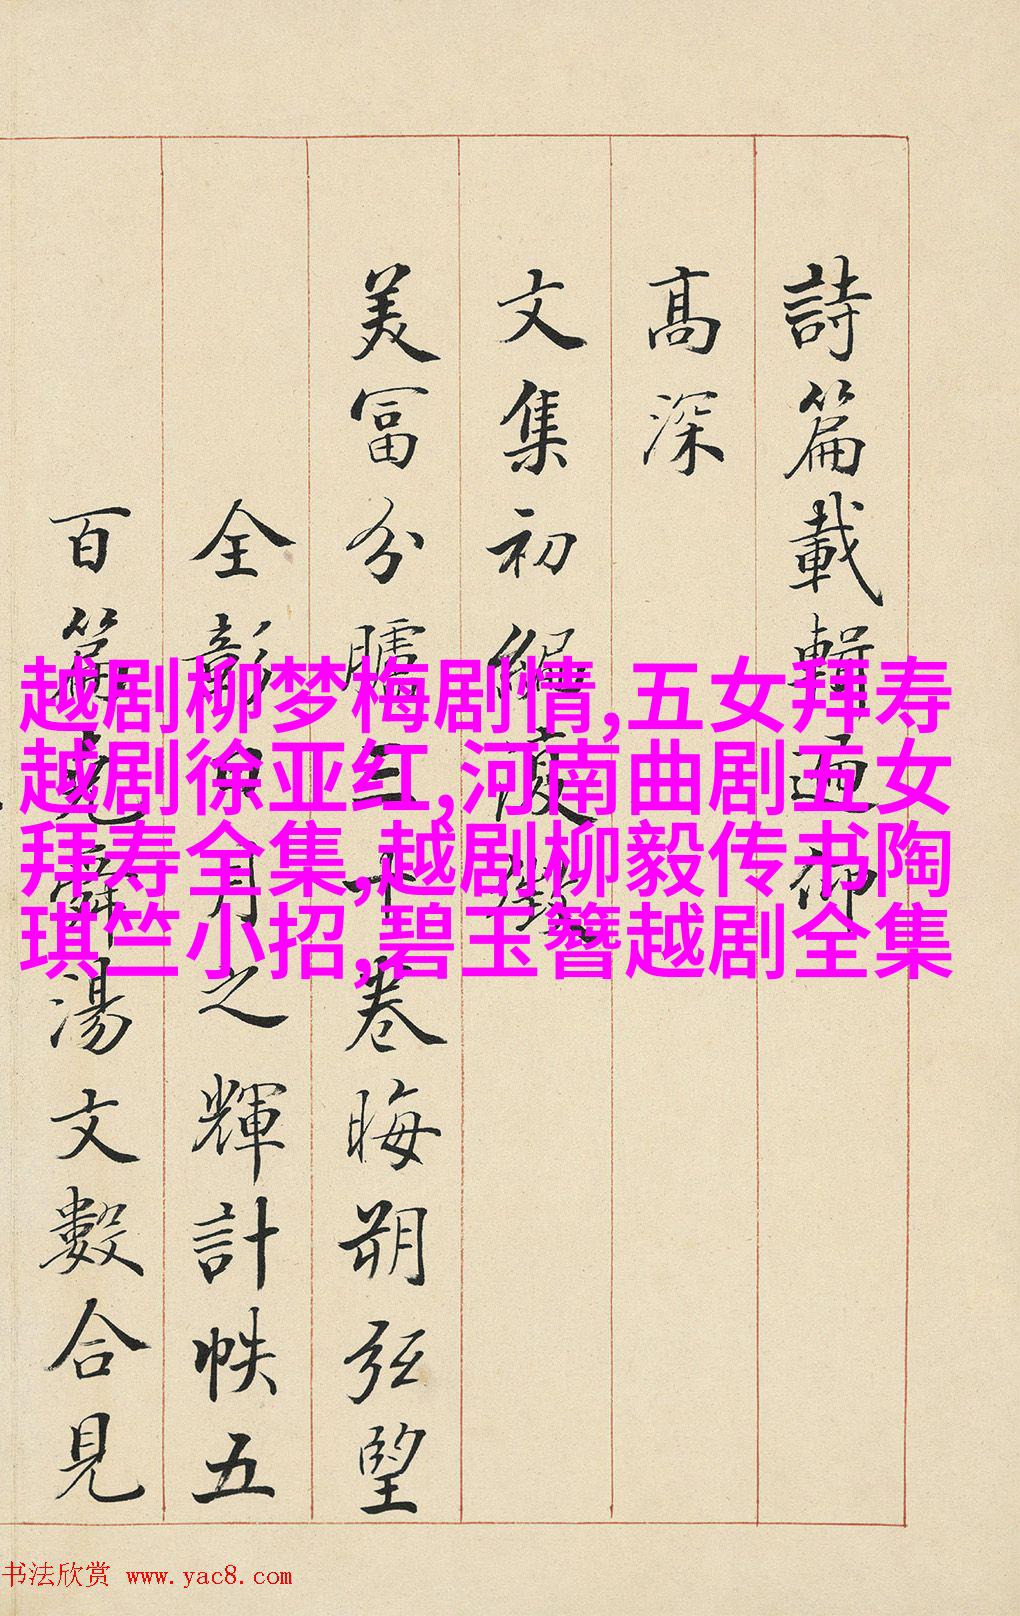 詩篇載輯迺仰
高深
文集初編復
美富分臚三十卷晦朔弦望
全彰日月之輝計帙五
百篇堯舜湯文數合見
越剧柳梦梅剧情,五女拜寿
越剧徐亚红,河南曲剧五女
拜寿全集,越剧柳毅传书陶
琪竺小招,碧玉簪越剧全集
书法欣赏 www.yac8.com